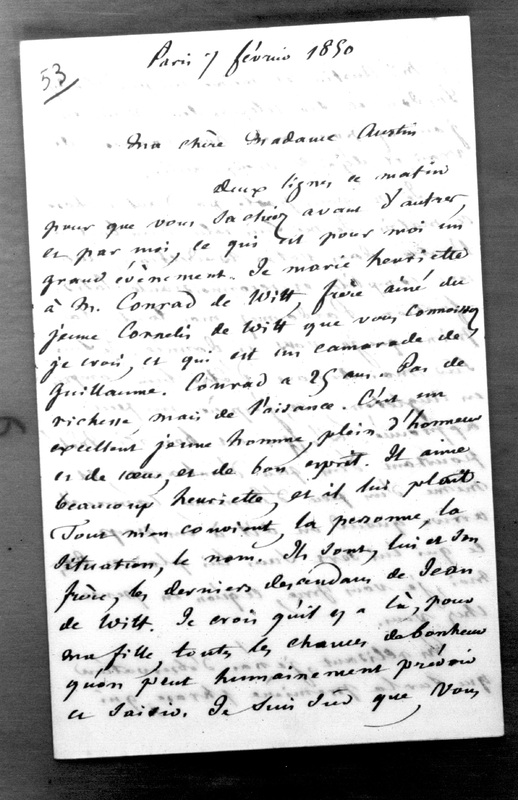 53
Paris 7 février 1850
Ma chère Madame Austin
deux lignes ce matin
pour que vous sachiez avant d'autres,
et par moi, ce qui est pour moi un
grand évènement. Je marie henriette
à M. Conrad de Witt, frère ainé du
jeune Cornelis de Witt que vous connoissez
je crois, et qui est un camarade de
Guillaume. Conrad a 25 ans. Pas de
richesse mais de l'aisance. C'est un
excellent jeune homme, plein d'honneur
et de cœur, et de bon esprit. Il aime
beaucoup henriette, et il lui plaît.
Tout m'en convient, la personne, la
situation, le nom. Ils sont, lui et son
frère, les derniers descendans de Jean
de Witt. Je crois qu'il y a là, pour
ma fille, toutes les chances de bonheur
qu'on peut humainement prévoir
et saisir. Je suis sûr que, vous